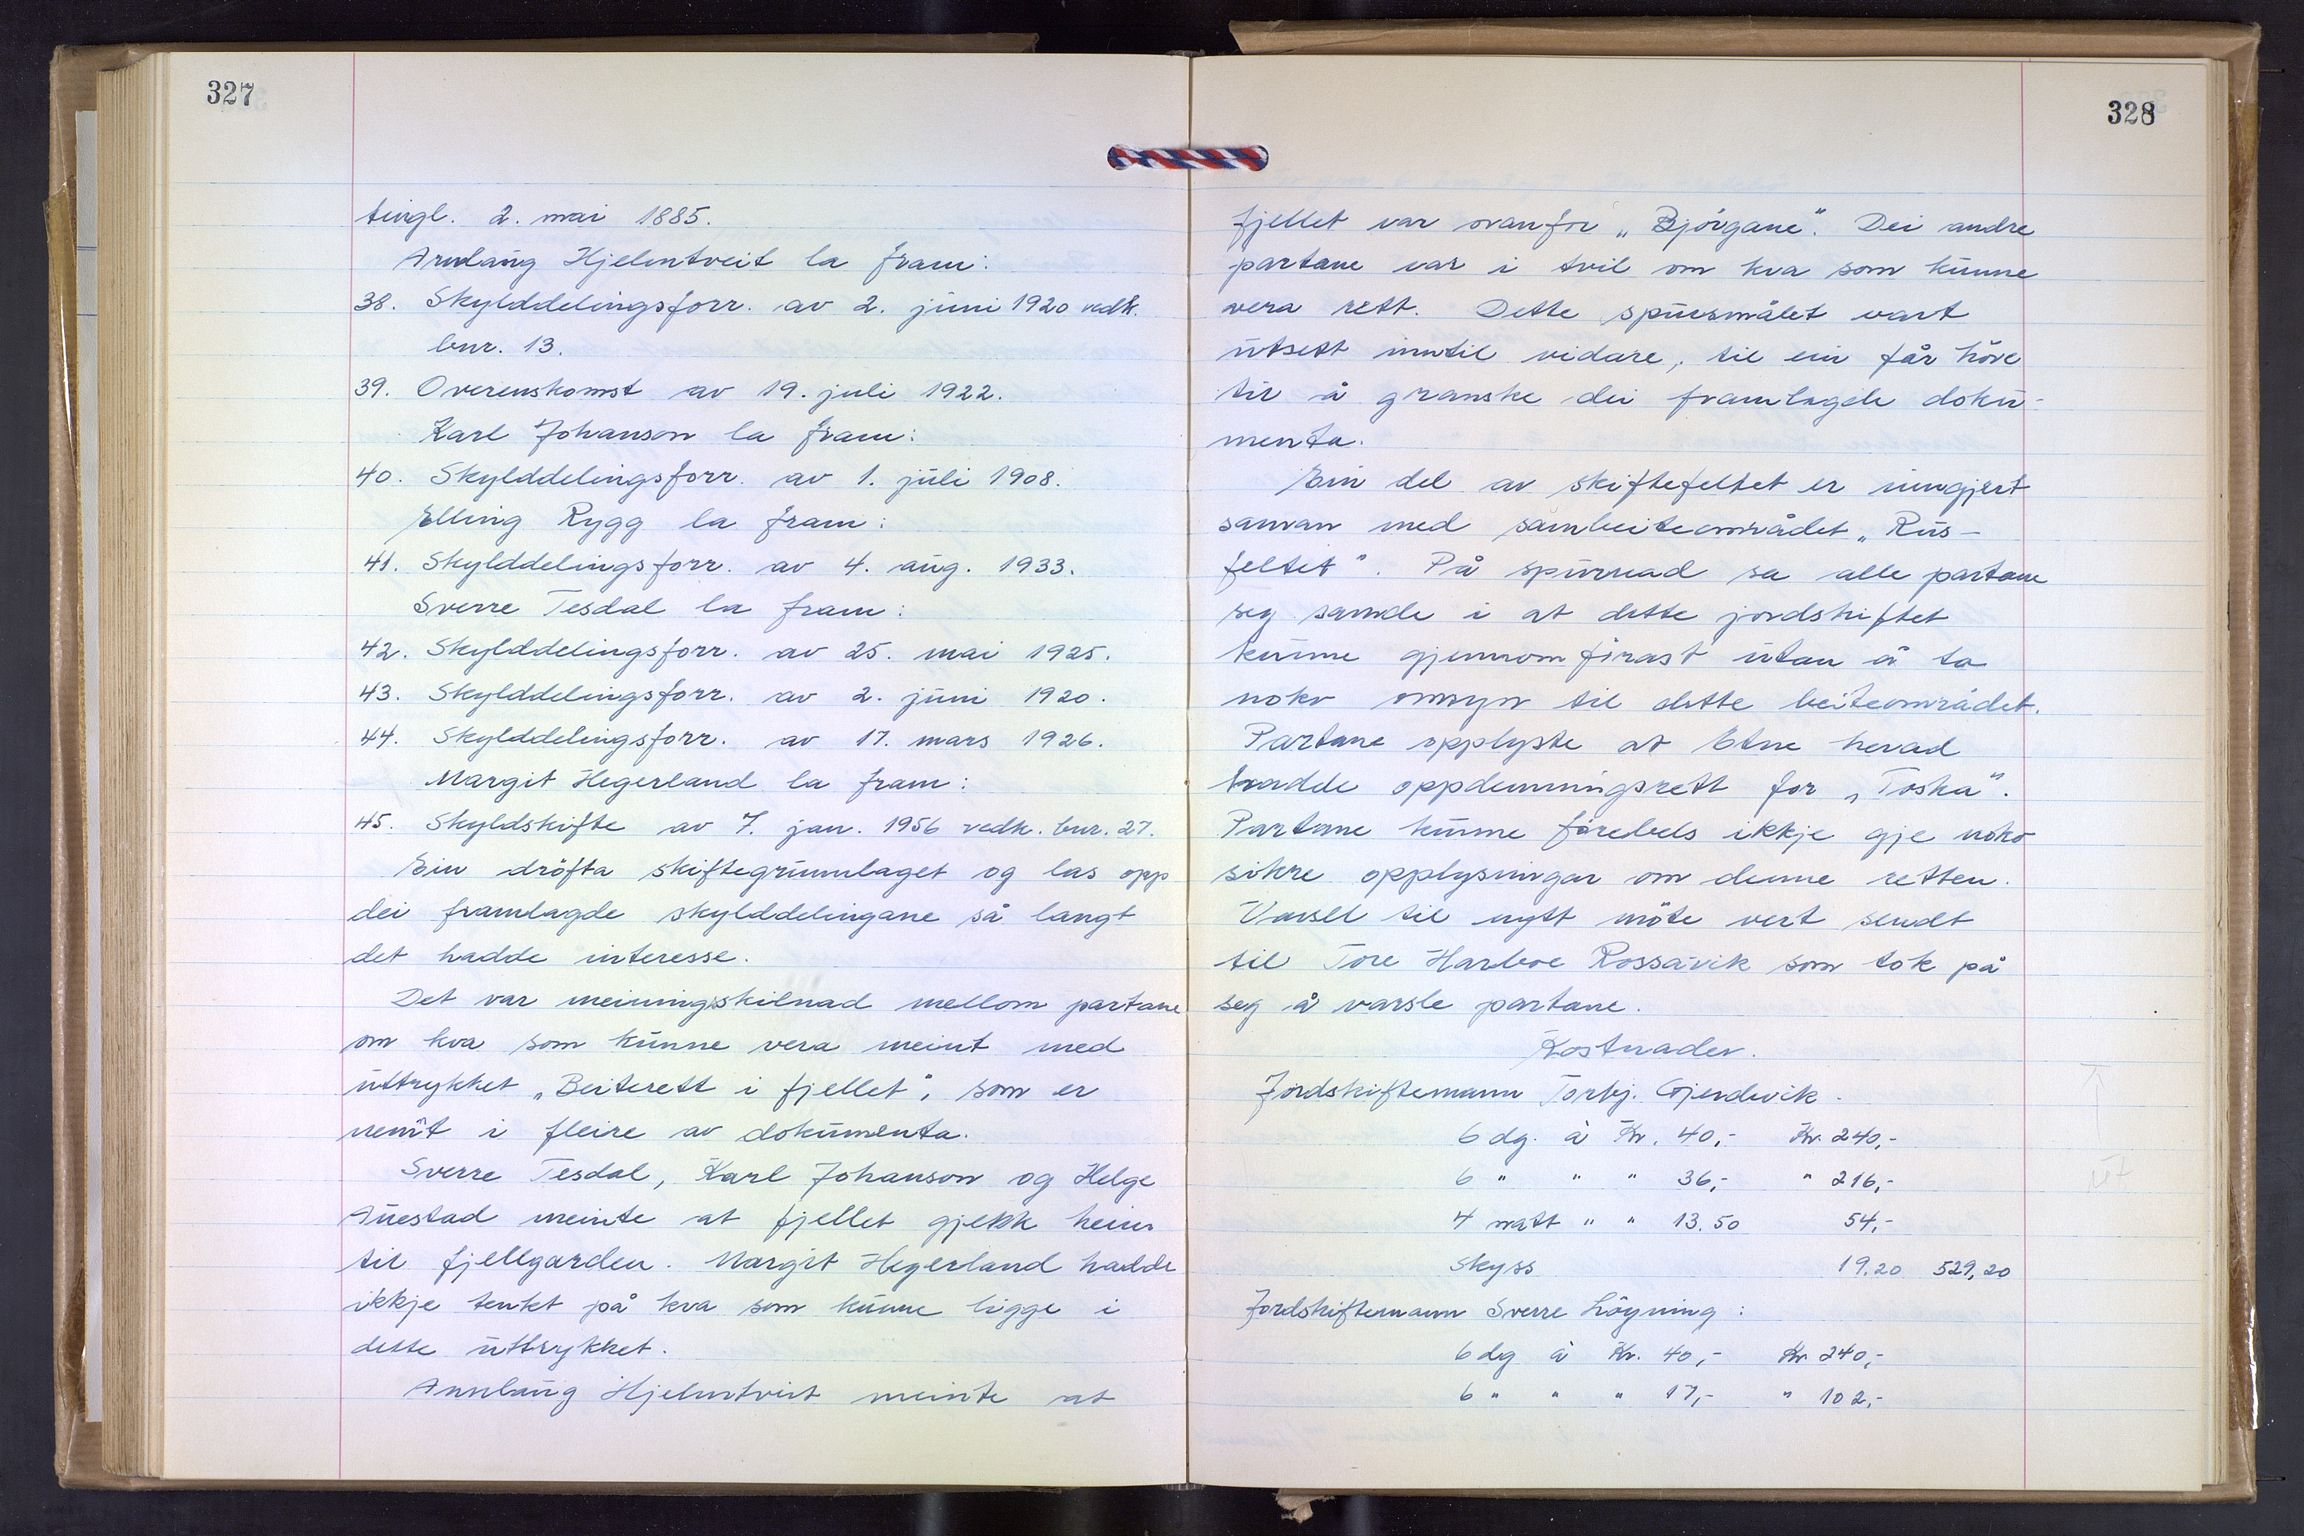 327
tingl. 2. mai 1885.
Arnlaug Hjelmtveit la fram:
38. Skylddelingsforr. av 2. juni 1920 vedk.
bnr. 13.
39. Overenskomst av 19. juli 1922.
Karl Johanson la fram:
40. Skylddelingsforr. av 1. juli 1908.
Elling Rygg la fram:
41. Skylddelingsforr. av 4. aug. 1933.
Sverre Tesdal la fram:
42. Skylddelingsforr. av 25. mai 1925.
43. Skylddelingsforr. av 2. juni 1920.
44. Skylddelingsforr. av 17. mars 1926.
Margit Hegerland la fram:
45. Skyldskifte av 7. jan. 1956 vedk. bnr. 27.
Ein dröfta skiftegrunnlaget og las opp
dei framlagde skylddelingane så langt
det hadde interesse.
Det var meiningsskilnad mellom partane
om kva som kunne vera meint med
uttrykket „Beiterett i fjellet", som er
nemt i fleire av dokumenta.
Sverre Tesdal, Karl Johanson og Helge
Auestad meinte at fjellet gjekk heim
til fjellgarden. Margit Hegerland hadde
ikkje tenkt på kva som kunne ligge i
dette uttrykket.
Arnlaug Hjelmtveit meinte at
328
fjellet var ovanfor „Bjørgane". Dei andre
partane var i tvil om kva som kunne
vera rett. Dette spursmålet vart
utsett inntil vidare, til ein får höve
til å granske dei framlagde doku-
menta.
Ein del av skiftefeltet er inngjert
saman med sambeiteområdet „Rus-
feltet". På spurnad sa alle partane
seg samde i at dette jordskiftet
kunne gjennomförast utan å ta
noko omsyn til dette beiteområdet.
Partane opplyste at Etne herad
hadde oppdemningsrett for „Toska".
Partane kunne förebels ikkje gje noko
sikre opplysningar om denne retten.
Varsel til nytt möte vert sendt
til Tore Harboe Rossavik som tok på
seg å varsle partane.
Kostnader.
Jordskiftemann Torbj. Gjerdevik.
6 dg. à Kr. 40,- Kr. 240,-
6 " " " 36,- " 216,-
4 natt " " 13.50 54,-
Skyss 19.20 529,20
Jordskiftemann Sverre Löyning:
6 dg à Kr. 40,- Kr 240,-
6 " " " 17,- " 102,-